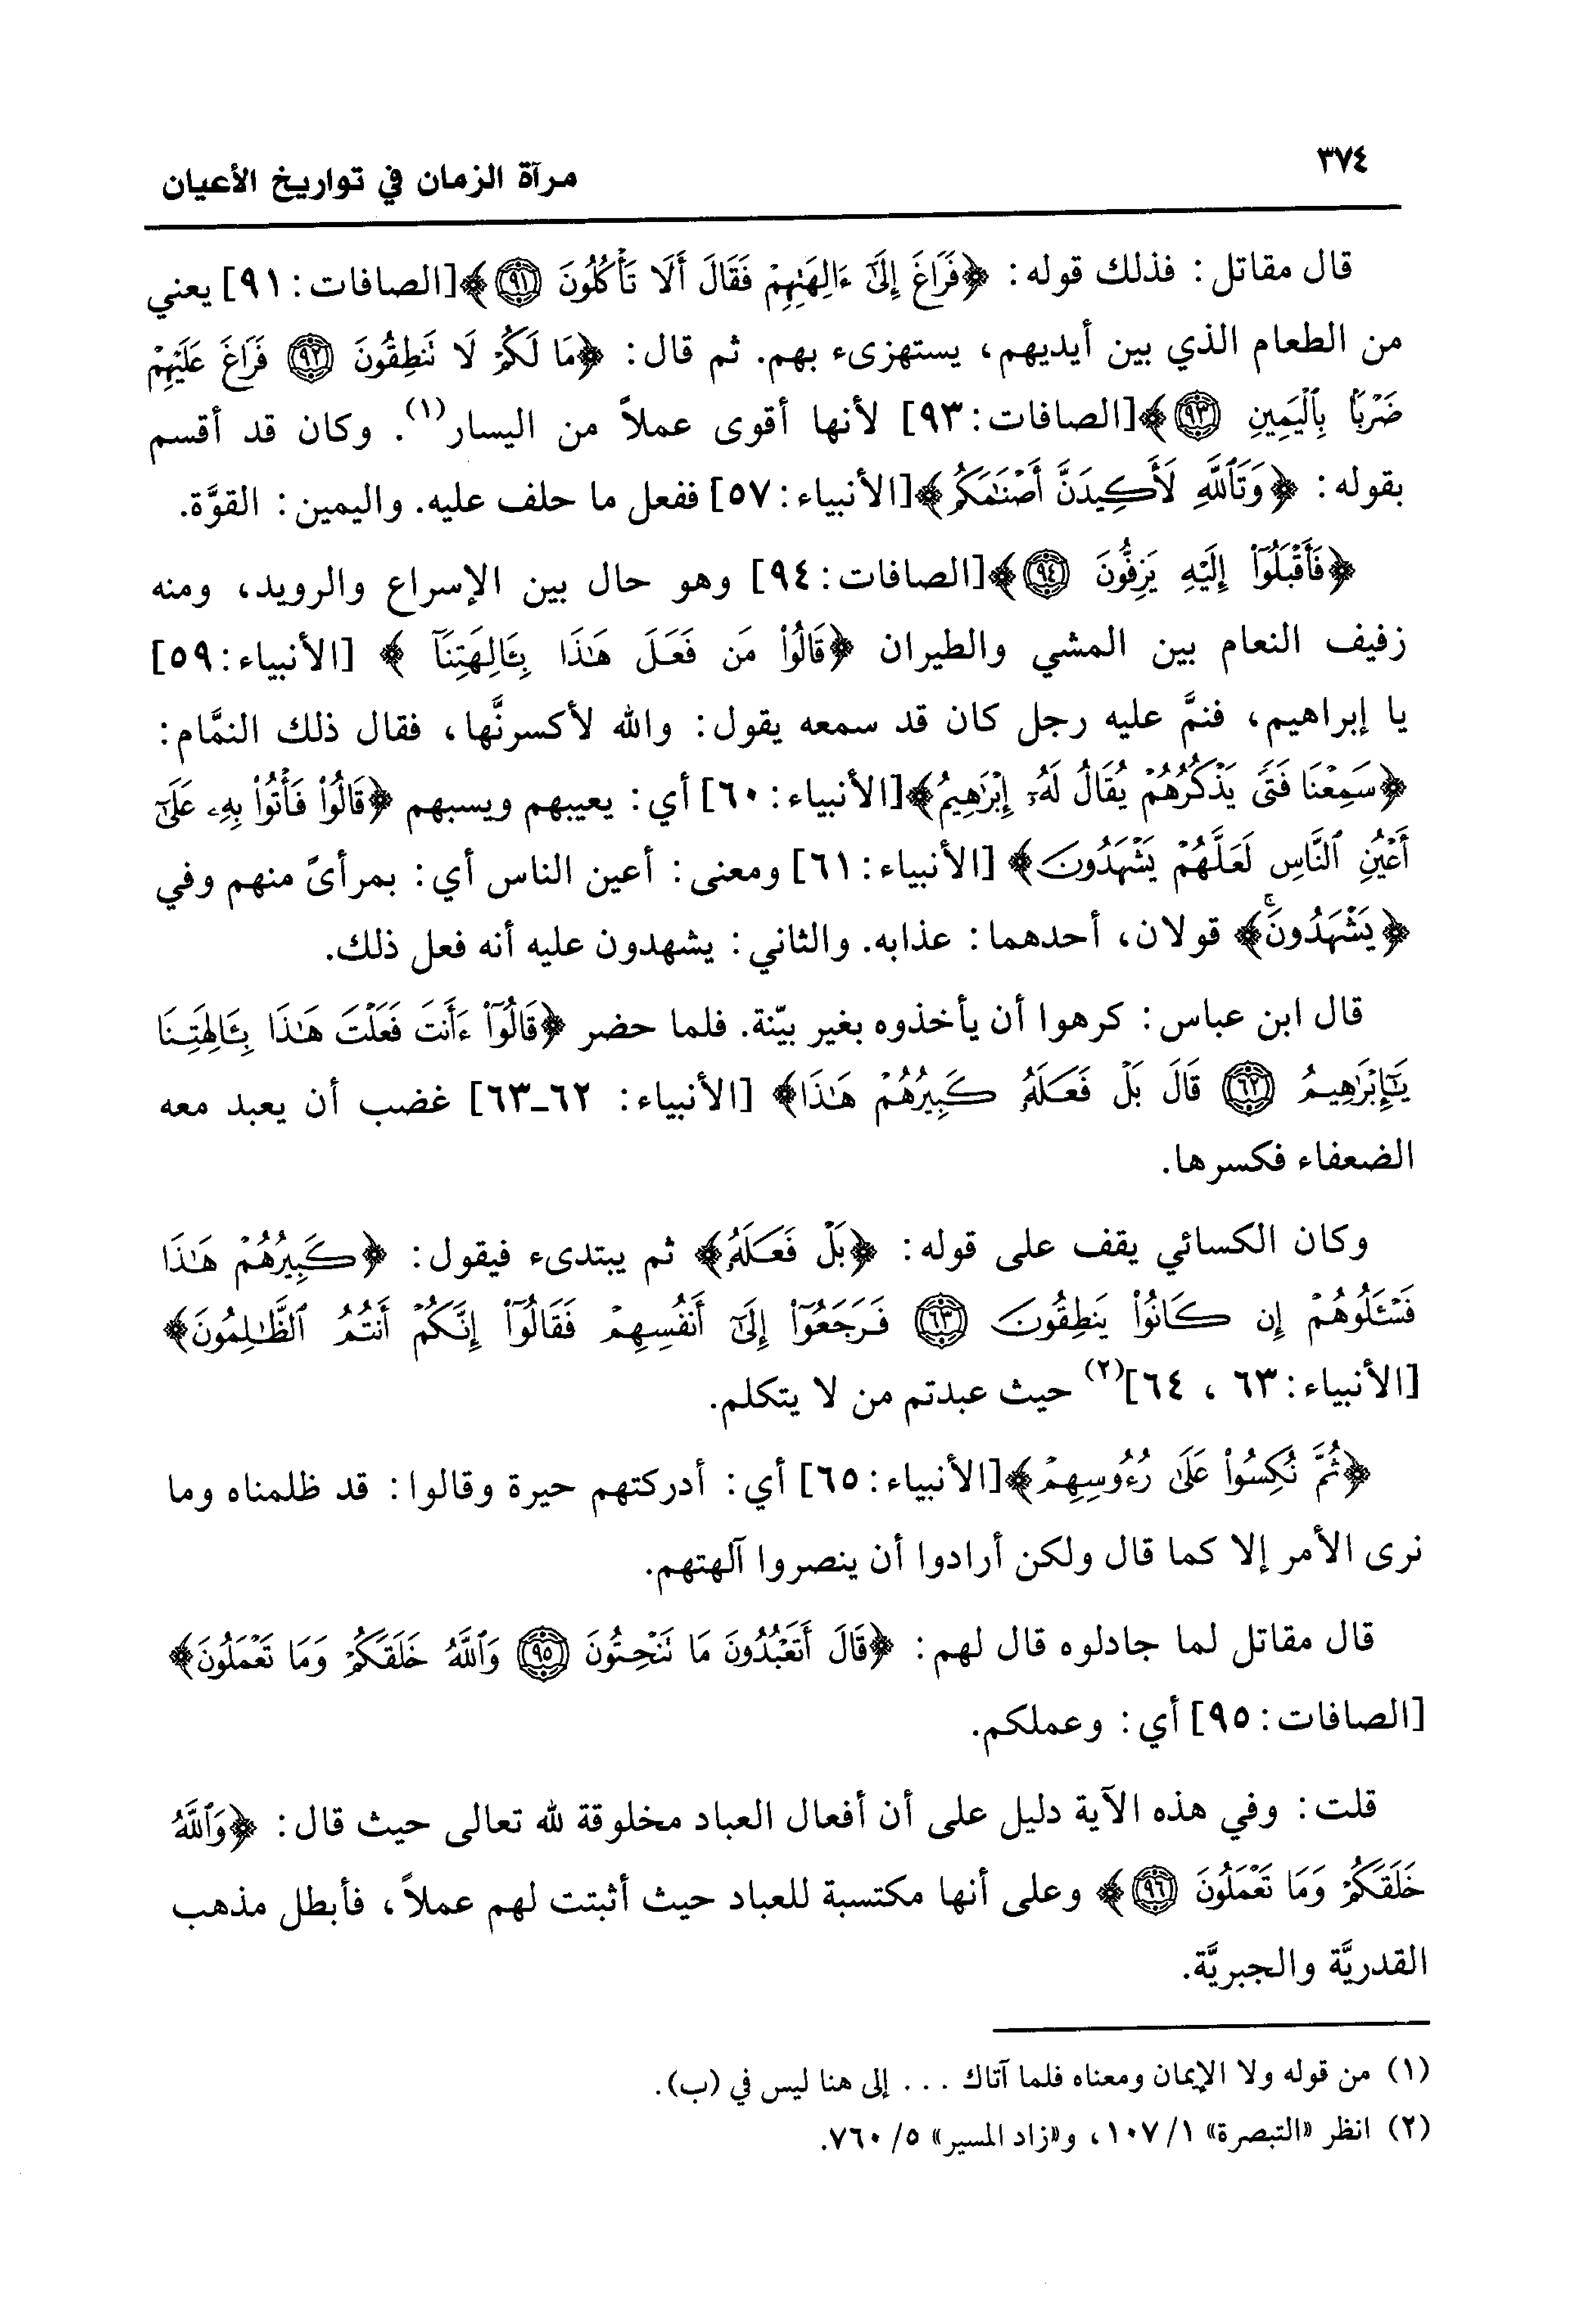 ٣٧٤
مرآة الزمان في تواريخ الأعيان
قال مقاتل: فذلك قوله: ﴿فَرَاغَ إِلَىٰٓ ءَالِهَتِهِمْ فَقَالَ أَلَا تَأْكُلُونَ ۝٩١﴾[الصافات: ٩١] يعني
من الطعام الذي بين أيديهم، يستهزىء بهم. ثم قال: ﴿مَا لَكُمْ لَا تَنطِقُونَ ۝٩٢ فَرَاغَ عَلَيْهِمْ
ضَرْبًۢا بِٱلْيَمِينِ ۝٩٣﴾[الصافات: ٩٣] لأنها أقوى عملاً من اليسار(١). وكان قد أقسم
بقوله: ﴿وَتَٱللَّهِ لَأَكِيدَنَّ أَصْنَٰمَكُم﴾[الأنبياء: ٥٧] ففعل ما حلف عليه. واليمين: القوَّة.
﴿فَأَقْبَلُوٓا۟ إِلَيْهِ يَزِفُّونَ ۝٩٤﴾[الصافات: ٩٤] وهو حال بين الإسراع والرويد، ومنه
زفيف النعام بين المشي والطيران ﴿قَالُوا۟ مَن فَعَلَ هَٰذَا بِـَٔالِهَتِنَآ ﴾ [الأنبياء: ٥٩]
يا إبراهيم، فنمَّ عليه رجل كان قد سمعه يقول: والله لأكسرنَّها، فقال ذلك النمَّام:
﴿سَمِعْنَا فَتًى يَذْكُرُهُمْ يُقَالُ لَهُۥٓ إِبْرَٰهِيمُ﴾[الأنبياء: ٦٠] أي: يعيبهم ويسبهم ﴿قَالُوا۟ فَأْتُوا۟ بِهِۦ عَلَىٰٓ
أَعْيُنِ ٱلنَّاسِ لَعَلَّهُمْ يَشْهَدُونَ﴾ [الأنبياء: ٦١] ومعنى: أعين الناس أي: بمرأىً منهم وفي
﴿يَشْهَدُونَۚ﴾ قولان، أحدهما: عذابه. والثاني: يشهدون عليه أنه فعل ذلك.
قال ابن عباس: كرهوا أن يأخذوه بغير بيّنة. فلما حضر ﴿قَالُوٓا۟ ءَأَنتَ فَعَلْتَ هَٰذَا بِـَٔالِهَتِنَا
يَٰٓإِبْرَٰهِيمُ ۝٦٢ قَالَ بَلْ فَعَلَهُۥ كَبِيرُهُمْ هَٰذَا﴾ [الأنبياء: ٦٢ـ٦٣] غضب أن يعبد معه
الضعفاء فكسرها.
وكان الكسائي يقف على قوله: ﴿بَلْ فَعَلَهُۥ﴾ ثم يبتدىء فيقول: ﴿كَبِيرُهُمْ هَٰذَا
فَسْـَٔلُوهُمْ إِن كَانُوا۟ يَنطِقُونَ ۝٦٣ فَرَجَعُوٓا۟ إِلَىٰٓ أَنفُسِهِمْ فَقَالُوٓا۟ إِنَّكُمْ أَنتُمُ ٱلظَّٰلِمُونَ﴾
[الأنبياء: ٦٣ ، ٦٤](٢) حيث عبدتم من لا يتكلم.
﴿ثُمَّ نُكِسُوا۟ عَلَىٰ رُءُوسِهِمْ﴾[الأنبياء: ٦٥] أي: أدركتهم حيرة وقالوا: قد ظلمناه وما
نرى الأمر إلا كما قال ولكن أرادوا أن ينصروا آلهتهم.
قال مقاتل لما جادلوه قال لهم: ﴿قَالَ أَتَعْبُدُونَ مَا تَنْحِتُونَ ۝٩٥ وَٱللَّهُ خَلَقَكُمْ وَمَا تَعْمَلُونَ﴾
[الصافات: ٩٥] أي: وعملكم.
قلت: وفي هذه الآية دليل على أن أفعال العباد مخلوقة لله تعالى حيث قال: ﴿وَٱللَّهُ
خَلَقَكُمْ وَمَا تَعْمَلُونَ ۝٩٦﴾ وعلى أنها مكتسبة للعباد حيث أثبتت لهم عملاً، فأبطل مذهب
القدريَّة والجبريَّة.
(١) من قوله ولا الإيمان ومعناه فلما آتاك ... إلى هنا ليس في (ب).
(٢) انظر «التبصرة» ١/ ١٠٧، و«زاد المسير» ٥/ ٧٦٠.